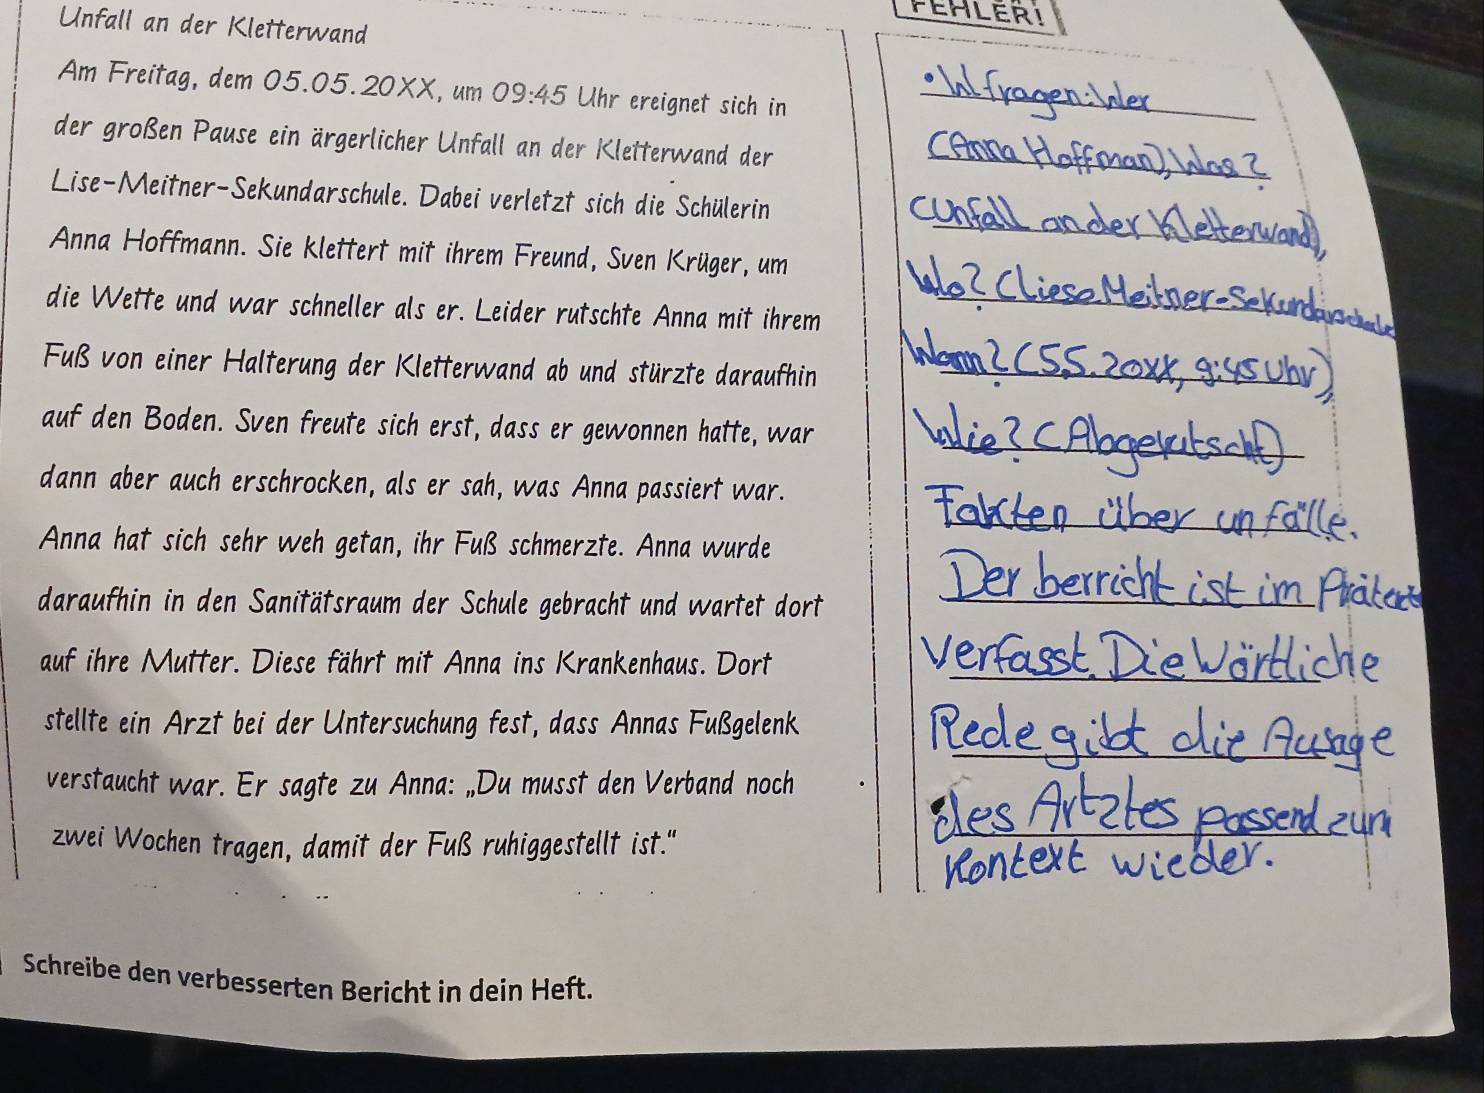 Unfall an der Kletterwand
Am Freitag, dem 05.05.20XX, um 09:45 Uhr ereignet sich in
der großen Pause ein ärgerlicher Unfall an der Kletterwand der
Lise-Meitner-Sekundarschule. Dabei verletzt sich die Schülerin
Anna Hoffmann. Sie klettert mit ihrem Freund, Sven Krüger, um
die Wette und war schneller als er. Leider rutschte Anna mit ihrem
Fuß von einer Halterung der Kletterwand ab und stürzte daraufhin
auf den Boden. Sven freute sich erst, dass er gewonnen hatte, war
dann aber auch erschrocken, als er sah, was Anna passiert war.
Anna hat sich sehr weh getan, ihr Fuß schmerzte. Anna wurde
daraufhin in den Sanitätsraum der Schule gebracht und wartet dort
auf ihre Mutter. Diese fährt mit Anna ins Krankenhaus. Dort
stellte ein Arzt bei der Untersuchung fest, dass Annas Fußgelenk
verstaucht war. Er sagte zu Anna: „Du musst den Verband noch
zwei Wochen tragen, damit der Fuß ruhiggestellt ist."
FEHLER!
• W fragen: Wer
(Anna Hoffman), Was?
(Unfall an der Kletterwand),
Wo? (Liese Meitner-Sekundarschule
Wann? (5.5.20xx, 9:45 Uhr),
Wie? (Abgerutscht)
Fakten über unfälle.
Der berricht ist im
verfasst. Die Wörtliche
Rede gibt die Ausage
des Artztes passend zum
Kontext wieder.
Schreibe den verbesserten Bericht in dein Heft.